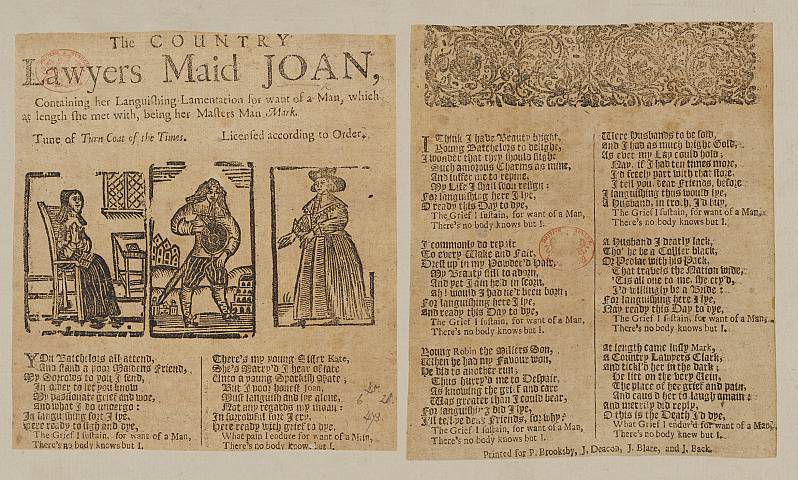 The COUNTRY
Lawyers Maid JOAN,
Containing her Languishing Lamentation for want of a Man, which
at length she met with, being her Masters Man Mark.
Tune of Turn Coat of the Times. Licensed according to Order.
YOu Batchelors all attend,
And stand a poor Maidens Friend,
My Sorrows to you I send,
In order to let you know
My passionate grief and woe,
And what I do undergo:
In languishing sort I lye,
Here ready to sigh and dye,
The Grief I sustain, for want of a Man,
There's no body knows but I.
There's my young Sister Kate,
She's Marry'd I hear of late
Unto a young Sparkish Mate;
But I poor honest Joan,
Must languish and lye alone,
Not any regards my moan:
In sorrowful sort I cry,
Here ready with grief to dye.
What pain I endure for want of a Man,
There's no body knows but I.
I Think I have Beauty bright,
Young Batchelors to delight,
I wonder that they should slight
Such amorous Charms as mine,
And suffer me to repine,
My Life I shall soon resign:
For languishing here I lye,
O ready this Day to dye,
The Grief I sustain, for want of a Man,
There's no body knows but I.
I commonly do repair
To every Wake and Fair,
Drest up in my Powder'd Hair,
My Beauty still to adorn,
And yet I am held in scorn,
Ah! would I had ne'r been born;
For languishing here I lye,
And ready this Day to dye,
The Grief I sustain, for want of a Man,
There's no body knows but I.
Young Robin the Millers Son,
When he had my Favour won,
He did to another run;
Thus hurry'd me to Despair,
As knowing the grief and care
Was greater than I could bear,
For languishing I did lye,
I'll tell ye dear Friends, for why?
The Grief I sustain, for want of a Man,
There's no body knows but I.
Were Husbands to be sold,
And I had as much bright Gold,
As ever my Lap could hold;
Nay, if I had ten times more,
I'd freely part with that store,
I tell you, dear Friends, before
I languishing thus would lye,
A Husband, in troth, I'd buy,
The Grief I sustain, for want of a Man,
There's no body knows but I.
A Husband I dearly lack,
Tho' he be a Collier black,
Or Pedlar with his Pack,
That travels the Nation wide,
'Tis all one to me, she cry'd,
I'd willingly be a Bride:
For languishing here I lye,
Nay ready this Day to dye,
The Grief I sustain, for want of a Man,
There's no body knows but I.
At length came lusty Mark,
A Country Lawyers Clark,
And tickl'd her in the dark;
He lit on the very Vein,
The place of her grief and pain,
And caus'd her to laugh amain:
And merrily did reply,
O this is the Death I'd dye,
What Grief I endur'd for want of a Man,
There's no body knew but I.
Printed for P. Brooksby, J. Deacon, J. Blare, and J. Back.